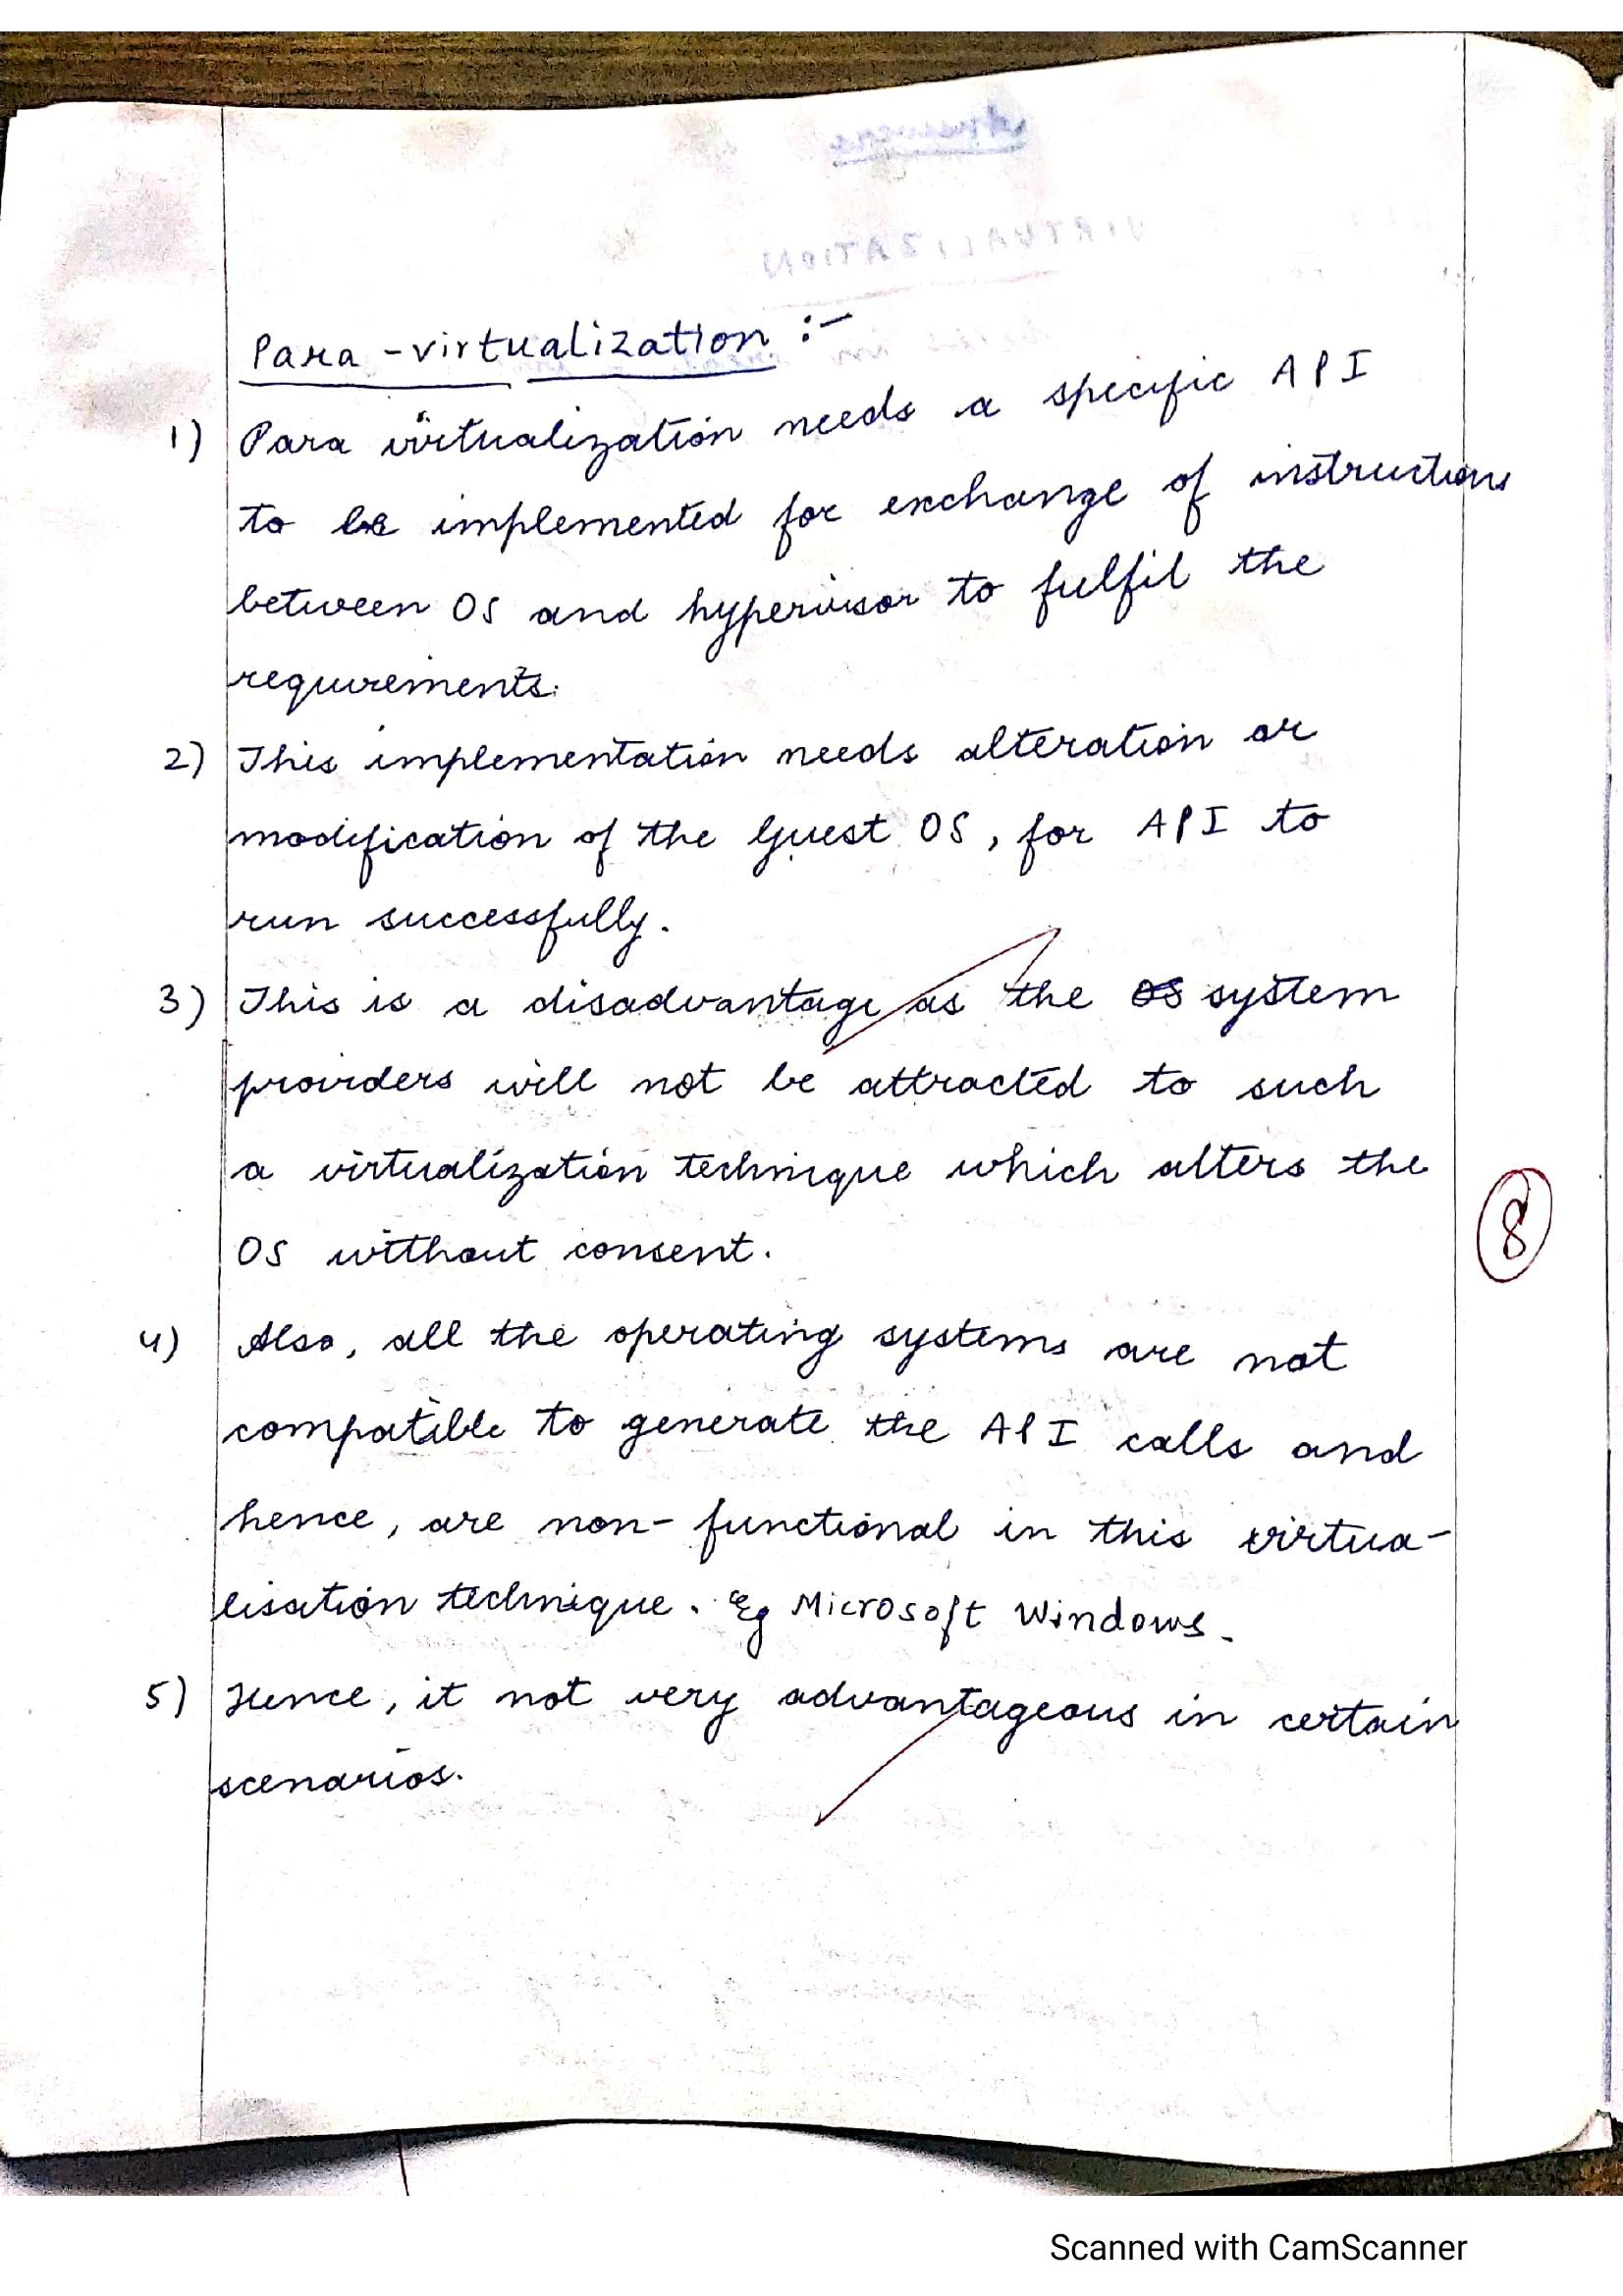 Para-virtualization :-
1) Para virtualization needs a specific API
to be implemented for exchange of instructions
between OS and hypervisor to fulfil the
requirements.
2) This implementation needs alteration or
modification of the Guest OS, for API to
run successfully.
3) This is a disadvantage as the OS system
providers will not be attracted to such
a virtualization technique which alters the
OS without consent.
8
4) Also, all the operating systems are not
compatible to generate the API calls and
hence, are non-functional in this virtua-
lisation technique. Eg Microsoft Windows.
5) Hence, it not very advantageous in certain
scenarios.
Scanned with CamScanner